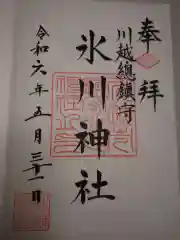 奉拝
川越總鎮守
氷川神社
令和六年五月三十一日